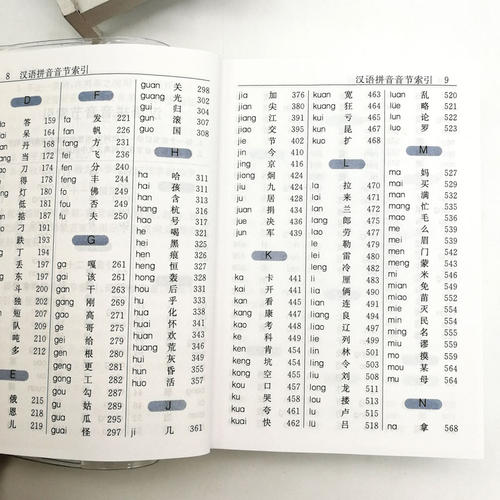 8 汉语拼音音节索引
D
答 159
呆 164
丹 168
当 172
刀 174
得 178
灯 180
低 181
掂 187
刁
跌 193
丁 194
丢 197
东 197
斗 200
独 202
短
队
吨
多 212
E
俄 215
恩 218
儿 219
F
fa 发 221
fan 帆 226
fang 方 231
fei 飞 236
fen 分 240
feng 丰 244
fo 佛 249
fou 否 249
fu 夫 250
G
ga 嘎 261
gai 该 261
gan 干 263
gang 刚 269
gao 高 271
ge 哥 275
gei 给 280
gen 根 280
geng 更 281
gong 工 282
gou 勾 287
gu 姑 289
gua 瓜 295
guai 怪 297
guan 关 298
guang 光 302
gui 归 304
gun 滚 307
guo 国 308
H
ha 哈 311
hai 孩 311
han 含 313
hang 杭 316
hao 号 317
he 喝 321
hei 黑 325
hen 痕 326
heng 恒 327
hong 轰 328
hou 后 331
hu 乎 333
hua 化 338
huai 怀 341
huan 欢 343
huang 荒 346
hui 灰 349
hun 昏 355
huo 活 357
J
ji 几 361
汉语拼音音节索引 9
jia 加 376
jian 尖 380
jiang 江 391
jiao 交 395
jie 节 402
jin 今 410
jing 京 416
jiong 炯 424
jiu 九 424
ju 居 428
juan 捐 434
jue 决 437
jun 军 439
K
ka 卡 441
kai 开 441
kan 看 445
kang 康 447
kao 考 448
ke 科 449
ken 肯 454
keng 坑 454
kong 空 455
kou 口 457
ku 哭 458
kua 夸 461
kuai 快 462
kuan 宽 463
kuang 狂 464
kui 亏 465
kun 昆 467
kuo 扩 468
L
la 拉 470
lai 来 472
lan 兰 473
lang 郎 475
lao 劳 477
le 勒 479
lei 雷 480
leng 冷 482
li 厘 483
lia 俩 490
lian 连 490
liang 良 493
liao 辽 495
lie 列 497
lin 林 500
ling 令 502
liu 刘 508
long 龙 510
lou 搂 512
lu 卢 513
lü 吕 518
luan 乱 520
lüe 略 521
lun 论 522
luo 罗 523
M
ma 妈 527
mai 买 529
man 满 530
mang 忙 532
mao 毛 533
me 么 535
mei 眉 535
men 门 538
meng 蒙 539
mi 米 541
mian 免 544
miao 苗 546
mie 灭 547
min 民 548
ming 名 549
miu 谬 552
mo 摸 553
mou 某 557
mu 母 557
N
na 拿 560